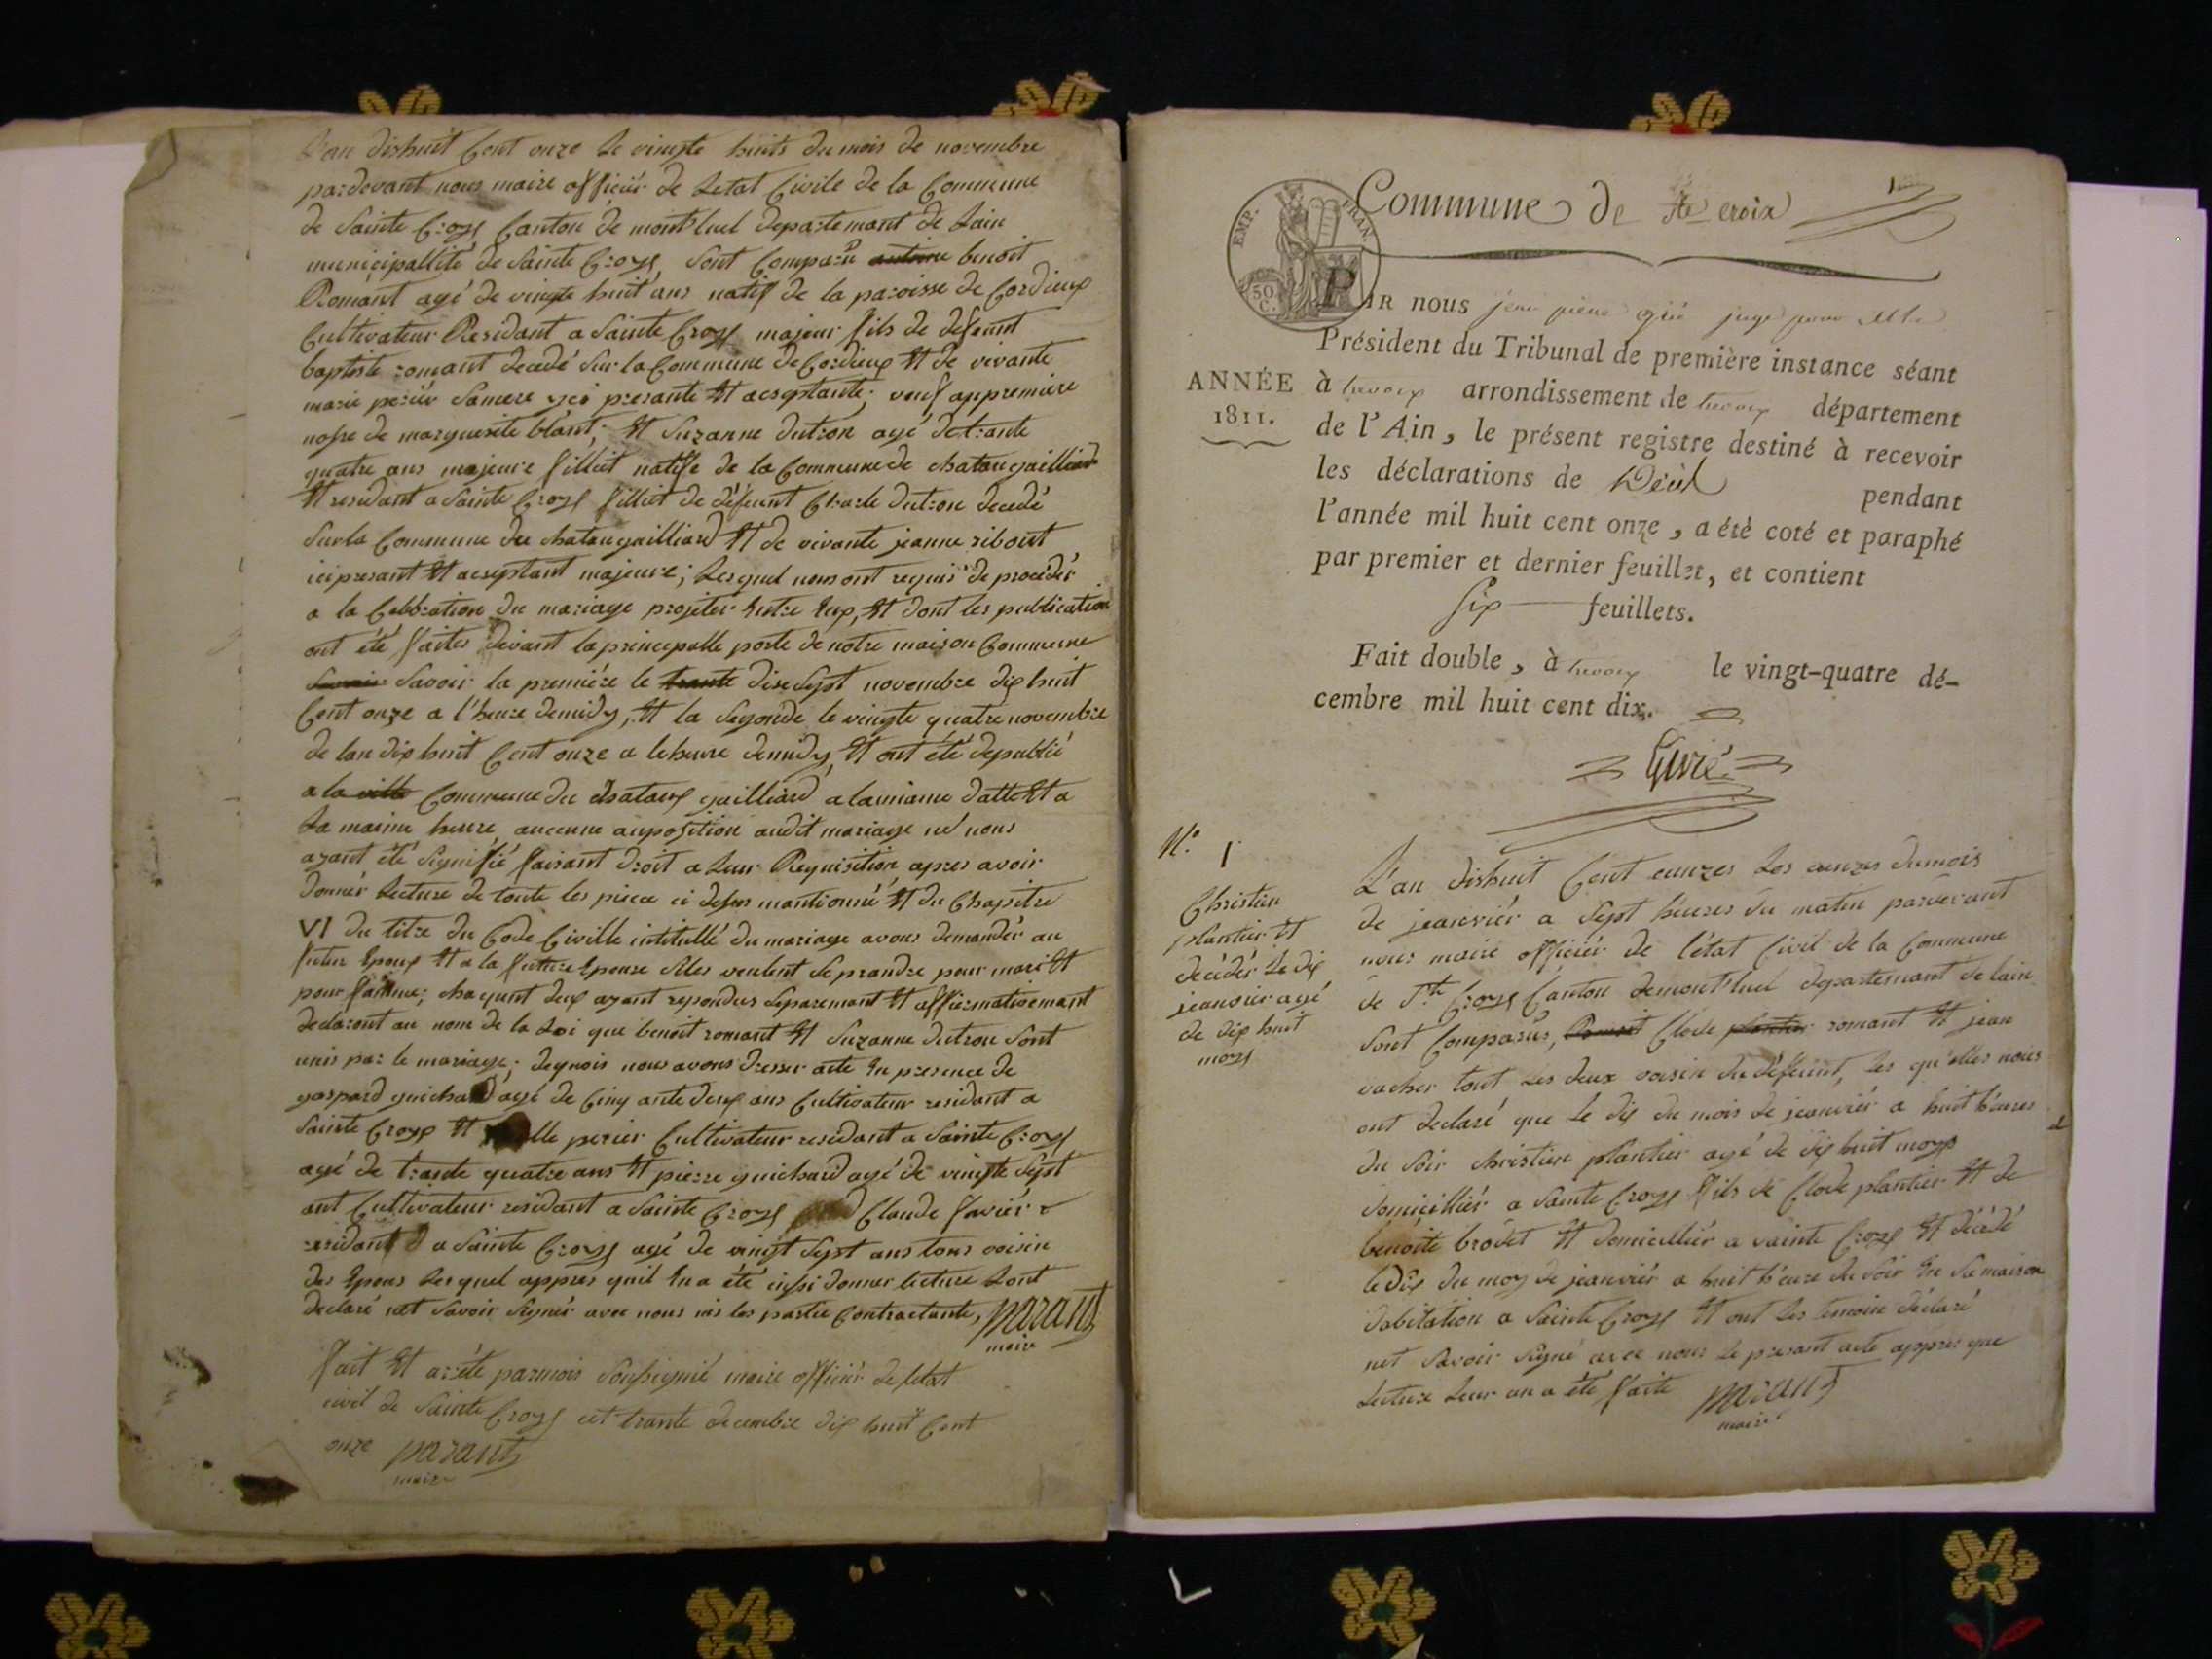 L'an dishuit Cent onze le vingte huits du mois de novembre
pardevant nous maire officiér de Letat Civile de la Commune
de Sainte Croys Canton de montluel departemant de Lain
municipallité de Sainte Croys, sont Comparu antoine benoit
Romant agé de vingte huit ans natif de la paroisse de Cordieux
Cultivateur Residant a Sainte Croys majeur fils de defeunt
baptiste romant decedé sur la Commune de Cordieux Et de vivante
marie periér Samere yci presante Et acseptante; veuf appremiere
nosse de marguerite blant; Et Suzanne dutron agé de trante
quatre ans majeure filliut natife de la Commune de chatau gailliard
Et residant a Sainte Croys filliut de défeunt Charle dutron decedé
Sur la Commune du chatau gailliard Et de vivante jeanne ribout
ici presant Et acseptant majeure; Lesquel nous ont requis de procéder
a la Cellbration du mariage projeter Entre Eux, Et dont les publication
ont été faites devant la principalle porte de notre maison Commune
Savoir la première le trante dixe Sept novembre dix huit
Cent onze a l'heure demidy, Et la Segonde le vingte quatre novembre
de lan dix huit Cent onze a leheure demidy, Et ont été depublié
a la ville Commune du Chataux gailliard a la maime datte Et a
La maime heure aucunne auposition audit mariage ne nous
ayant été Signifié faisant droit a Leur Requisition apres avoir
donnér Lecture de toute les piece ci desus mantionné Et du Chapitre
VI du titre du Code Civille intitullé du mariage avons demandér au
futur Epoux Et a la future Epouse Siles veulent Se prandre pour mari Et
pour famme; chaqunt deux ayant repondus Separemant Et affirmativemant
declaront au nom de la Loi que benoit romant Et Suzanne dutron Sont
unis par le mariage; dequois nous avons dresser acte En presence de
gaspard guichard agé de Cinq ante deux ans Cultivateur residant a
Sainte Croys Et perier Cultivateur residant a Sainte Croys
agé de trante quatre ans Et pierre guichard agé de vingte Sept
ant Cultivateur residant a Sainte Croys Claude favier
residant a Sainte Croys agé de vingt Sept ans tous voisin
des Epous Lesquel appres quil En a été insi donner lecture Lont
declaré net Savoir Signér avec nous nis les partie Contractante, parant
maire
fait Et arréte parmois Soussignié maire officiér de letat
civil de Sainte Croys cet trante decembre dix huit Cent
onze parant
maire
Commune de Ste croix
EMP. FRAN.
50 C.
PAR nous jean pierre juge pour
Président du Tribunal de première instance séant
ANNÉE 1811.
à trevoux arrondissement de trevoux département
de l'Ain, le présent registre destiné à recevoir
les déclarations de Décès pendant
l'année mil huit cent onze, a été coté et paraphé
par premier et dernier feuillet, et contient
six feuillets.
Fait double, à trevoux le vingt-quatre dé-
cembre mil huit cent dix.
N.° 1
Christien
plantier Et
decédér Le dix
jeanvier agé
de dix huit
moys
L'an dishuit Cent eunzes Les eunzes du mois
de jeanviér a Sept heures du matin pardevant
nous maire officiér de l'état Civil de la Commune
de Ste Croys Canton demontluel departemant de lain
Sont Comparus, Clode plantier romant Et jean
vacher tout Les deux voisin du défeunt, Les qu'elles nous
ont declaré que Le dix du mois de jeanviér a huit heures
du Soir christien plantier agé de dix huit moys
domicilliér a Sainte Croys fils de Clode plantier Et de
benoite brodet Et domicilliér a sainte Croys Et décédé
le dix du moy de jeanviér a huit heure du Soir En Sa maison
dabitation a Sainte Croys Et ont Les temoin déclaré
net Savoir Signé avec nous Le presant acte appres que
Lecture Leur an a été faite parant
maire